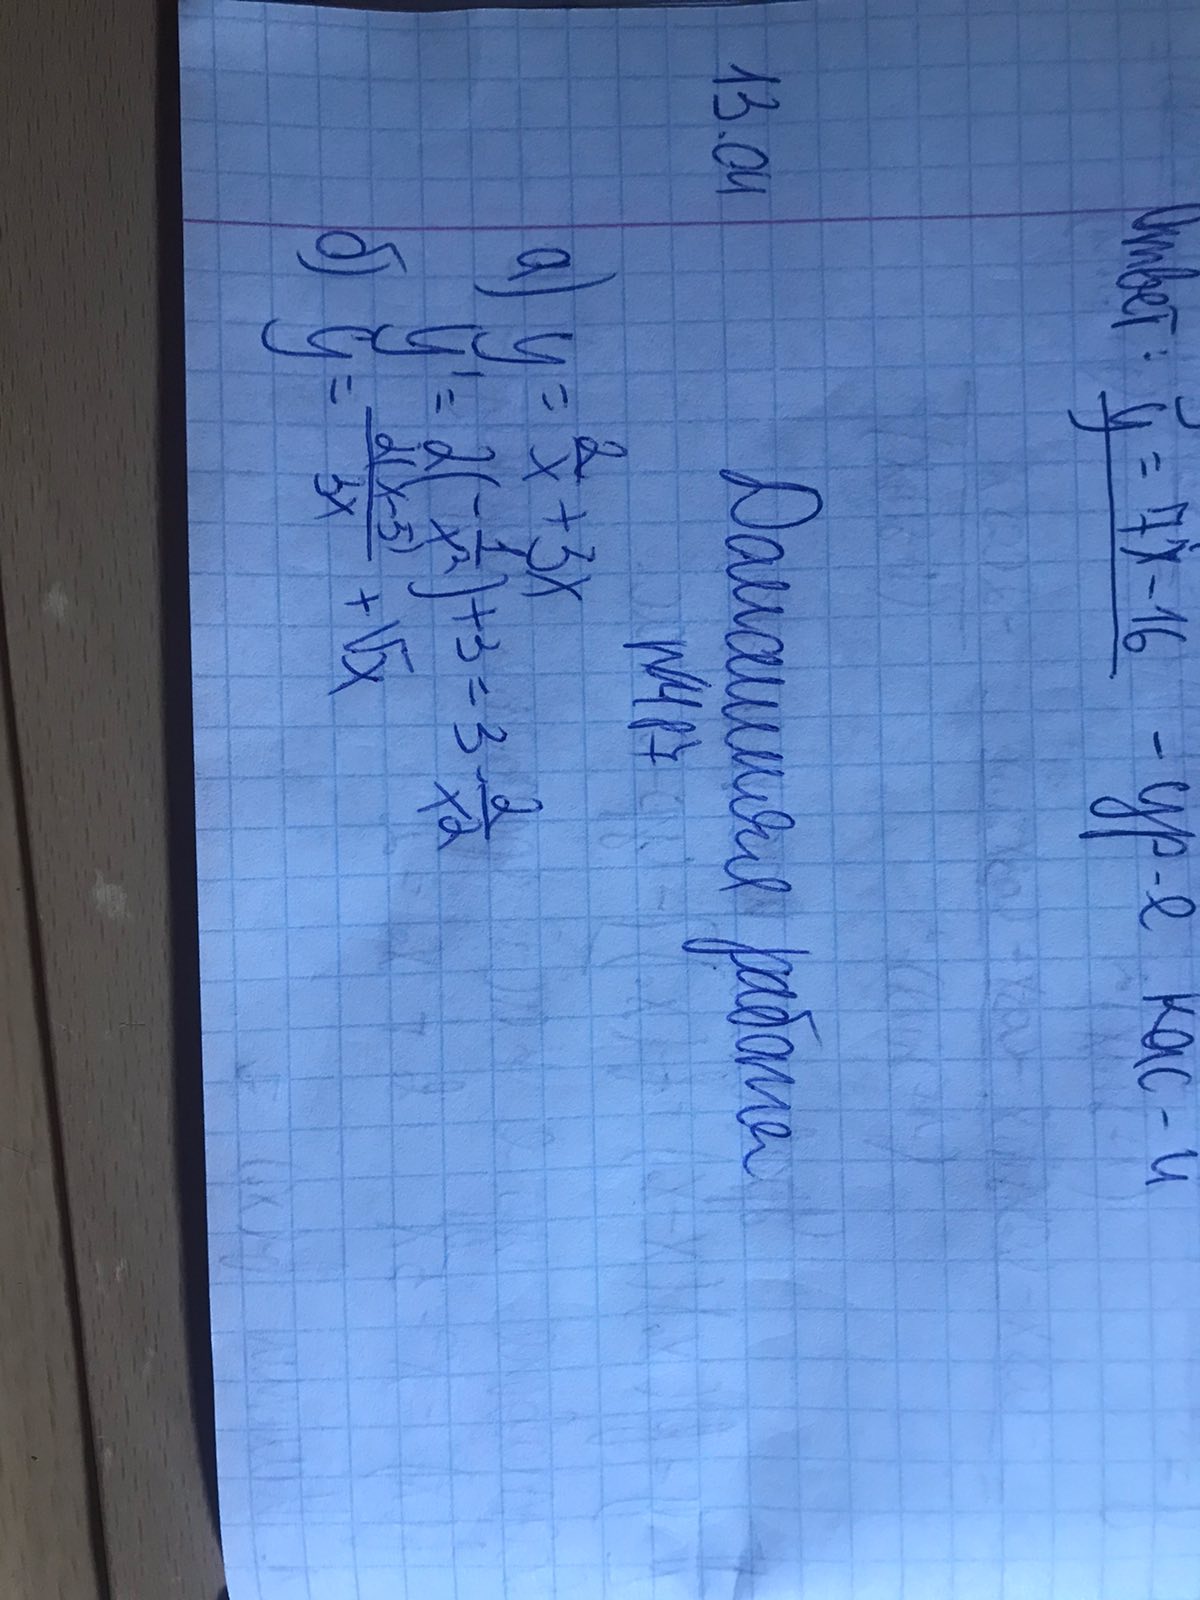 Ответ: y = 7x - 16 - ур-е кас-й
13.04
Домашняя работа
а) y = 2/x + 3x
y' = 2(-1/x²) + 3 = 3 - 2/x²
б) y = 2(x-5)/3x + √x